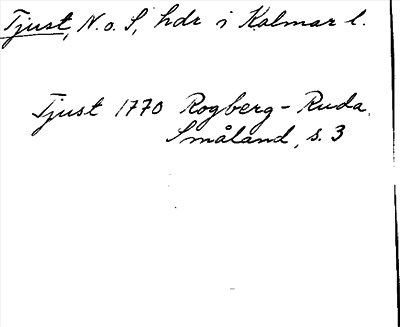 Tjust, N. o. S, hdr i Kalmar l.
Tjust 1770 Rogberg - Ruda.
Småland, s. 3